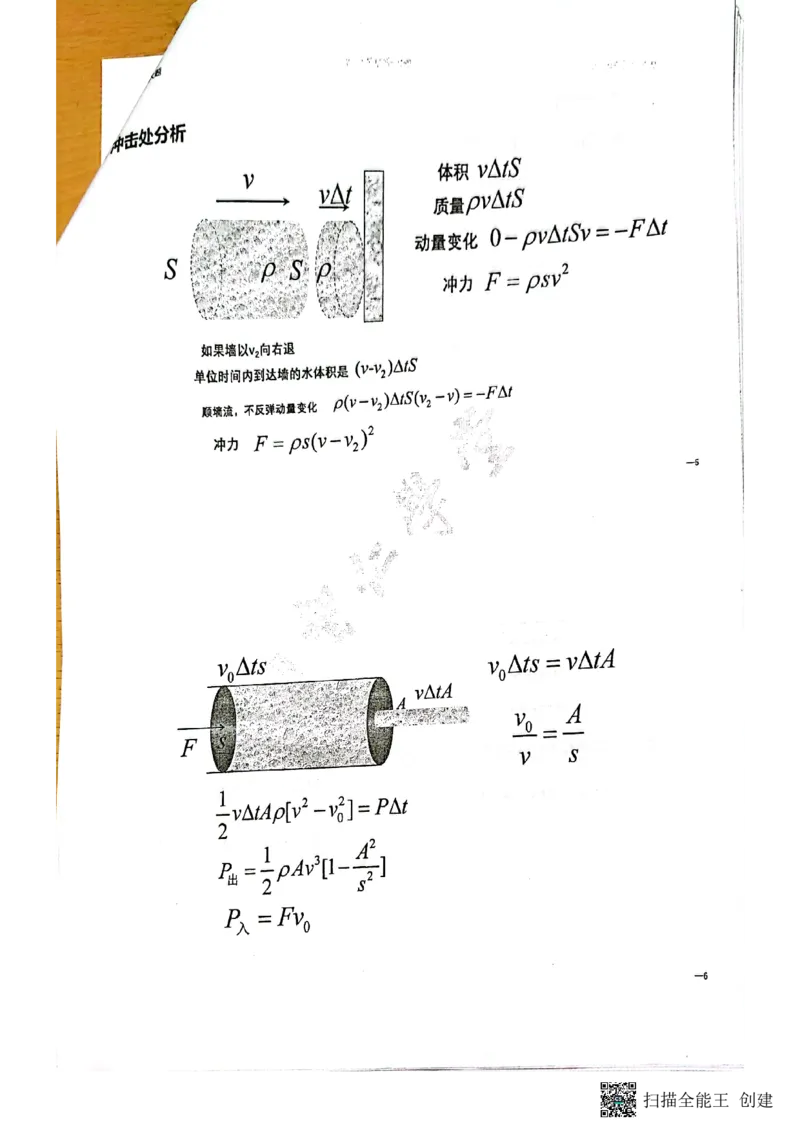 冲击处分析
v
vΔt
S
ρ S ρ
体积 vΔtS
质量ρvΔtS
动量变化 0-ρvΔtSv=-FΔt
冲力 F=ρsv²
如果墙以v₂向右退
单位时间内到达墙的水体积是 (v-v₂)ΔtS
顺墙流,不反弹动量变化 ρ(v-v₂)ΔtS(v₂-v)=-FΔt
冲力 F=ρs(v-v₂)²
—5
v₀Δts
A vΔtA
F
s
v₀Δts=vΔtA
v₀/v=A/s
1/2 vΔtAρ[v²-v₀²]=PΔt
P出=1/2 ρAv³[1-A²/s²]
P入=Fv₀
—6
扫描全能王 创建